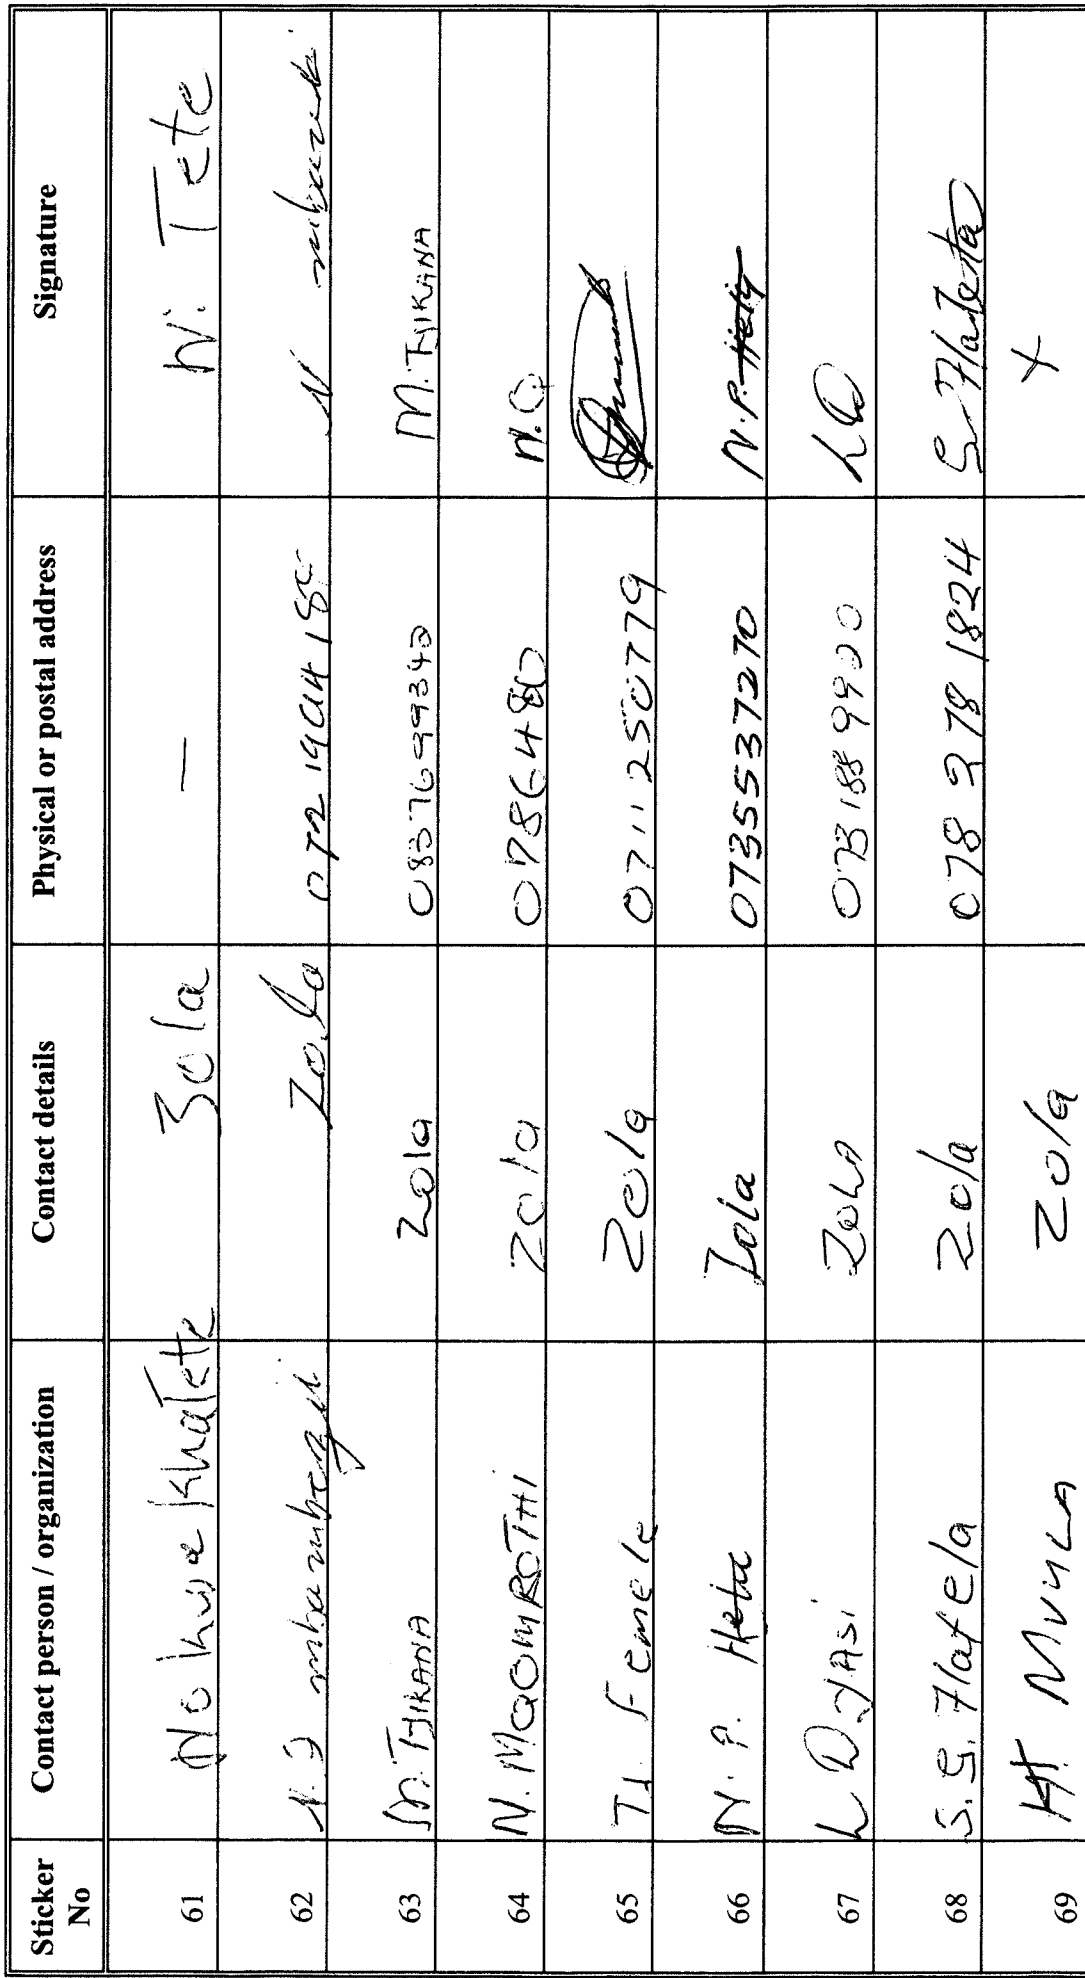 Sticker No Contact person / organization Contact details Physical or postal address Signature
61 Nokwakha Tete Zola – N. Tete
62 Zola
63 M. TYIKANA Zola 0837699342 M. TYIKANA
64 N. MaomROTHI Zola 0786480 N.Q
65 T.L Femele Zola 0711250779
66 N.P. Hela Zola 0735537270 N.P. Hela
67 L DYASi ZOLA 0731889920 LD
68 S.G. Hafela Zola 078 378 1824 S Hafela
69 H. MVULA Zola X